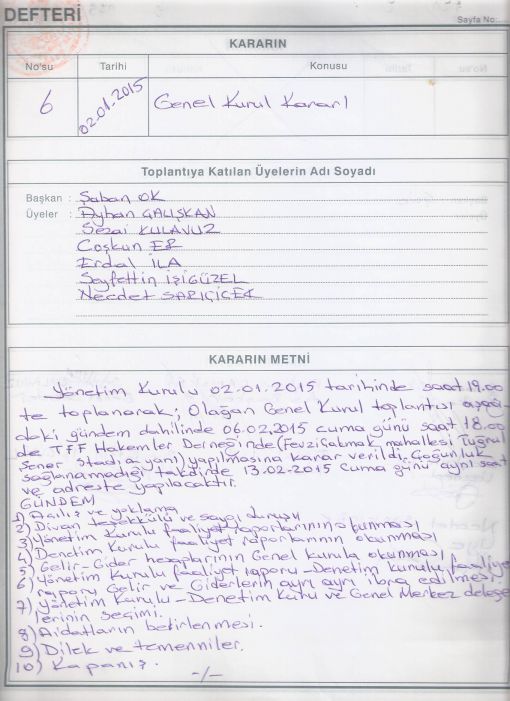 DEFTERİ
Sayfa No:
KARARIN
No'su Tarihi Konusu
6 02.01.2015 Genel Kurul Kararı
Toplantıya Katılan Üyelerin Adı Soyadı
Başkan : Şaban OK
Üyeler : Ayhan ÇALIŞKAN
Sezai KULAVUZ
Coşkun ER
Erdal İLA
Seyfettin İŞİGÜZEL
Necdet SARIÇİÇEK
KARARIN METNİ
Yönetim Kurulu 02.01.2015 tarihinde saat 19.00
te toplanarak; Olağan Genel Kurul toplantısı aşağı-
daki gündem dahilinde 06.02.2015 cuma günü saat 18.00
de TFF Hakemler Derneğinde (Fevziçakmak mahallesi Tuğrul
Şener Stadı yanı) yapılmasına karar verildi. Çoğunluk
sağlanamadığı takdirde 13.02.2015 Cuma günü aynı saat
ve adreste yapılacaktır.
GÜNDEM
1) Açılış ve yoklama
2) Divan teşekkülü ve saygı duruşu
3) Yönetim Kurulu faaliyet raporlarının okunması
4) Denetim Kurulu faaliyet raporlarının okunması
5) Gelir-Gider hesaplarının Genel kurula okunması
6) Yönetim Kurulu faaliyet raporu - Denetim kurulu faaliyet
raporu Gelir ve Giderlerin ayrı ayrı ibra edilmesi
7) Yönetim Kurulu - Denetim Kurulu ve Genel Merkez delege
lerinin seçimi.
8) Aidatların belirlenmesi.
9) Dilek ve temenniler.
10) Kapanış.
-/-